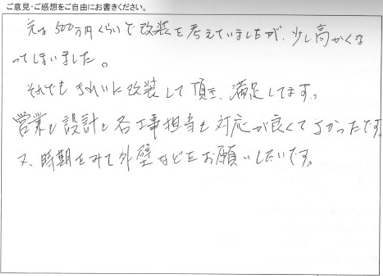 ご意見・ご感想をご自由にお書きください。
元は500万円くらいで改装を考えていましたが、少し高かくな
ってしまいました。
それでもきれいに改装して頂き、満足してます。
営業も設計も各工事担当も対応が良くてよかったです。
又、時期をみて外壁などをお願いしたいです。